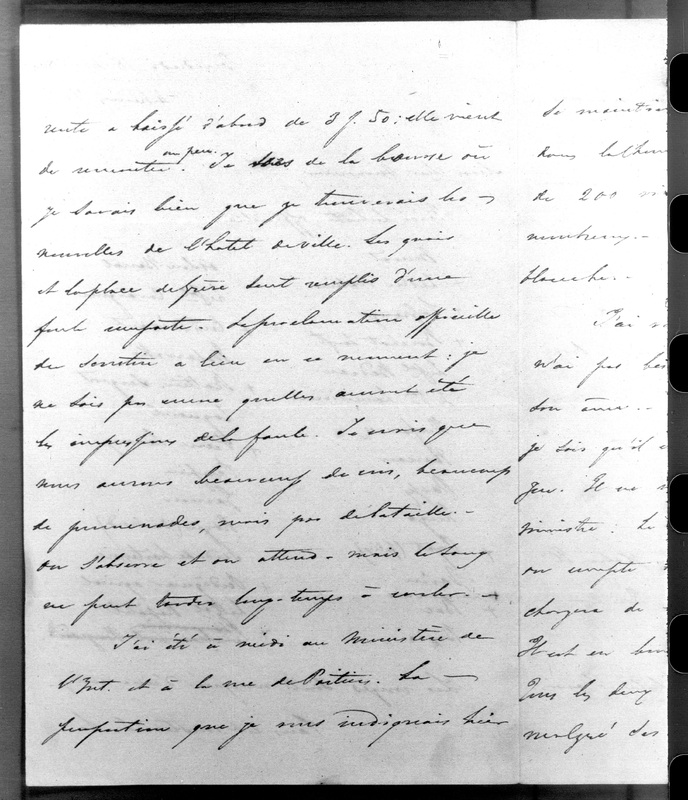 rente a baissé d'abord de 3 f. 50: elle vient
de remonter un peu. Je sors de la bourse où
je savais bien que je trouverais les
nouvelles de l'hôtel de ville. Les quais
et la place de grève sont remplis d'une
foule compacte. La proclamation officielle
du scrutin a lieu en ce moment: je
ne sais pas encore quelles auront été
les impressions de la foule. Je crois que
nous aurons beaucoup de cris, beaucoup
de promenades, mais pas de bataille.-
on s'observe et on attend - mais le sang
ne peut tarder long-temps à couler.-
J'ai été à midi au Ministère de
l'Int. et à la rue de Poitiers. La
proportion que je vous indiquais hier
se maintien
dans
de 200
montreny.-
blanche.-
J'ai
n'ai pas
son âme..
je sais qu'il
Il ne
ministre. Le
on compte
chargera de
Il est en
Tous les deux
malgré des